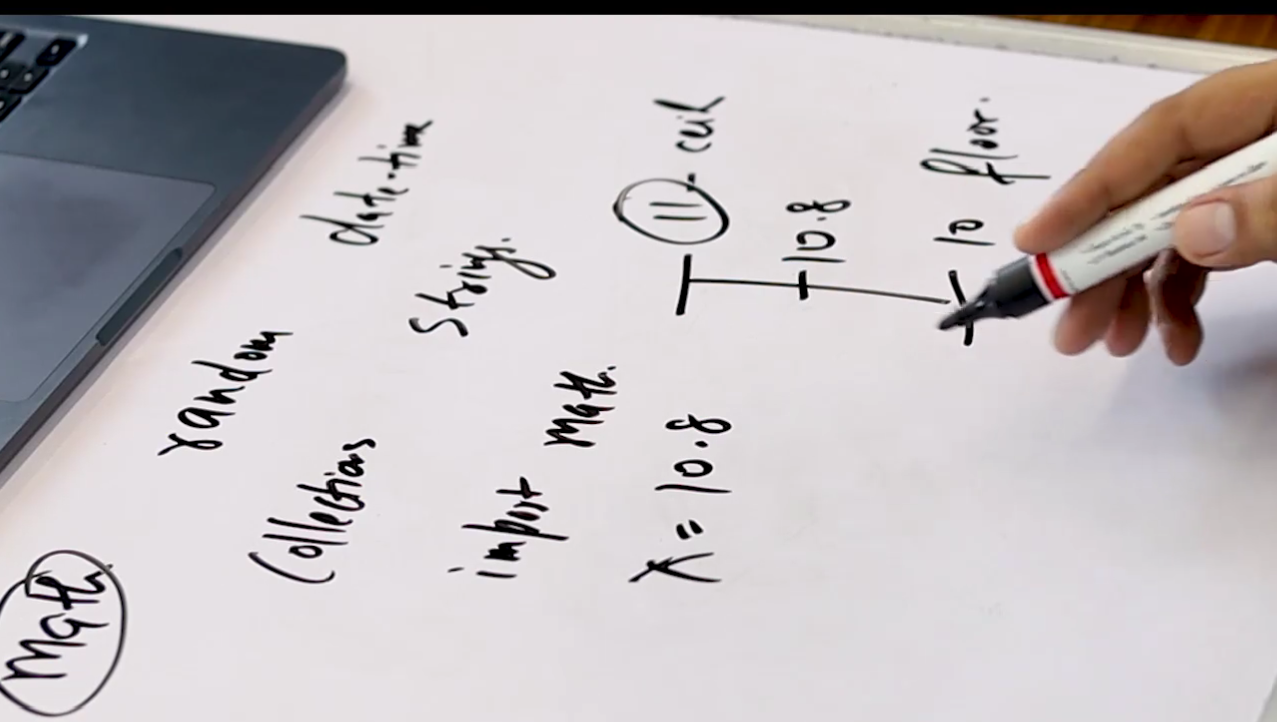 Math
random
date-time
Collections
String.
import math.
x = 10.8
11 - ceil
10.8
10 floor.